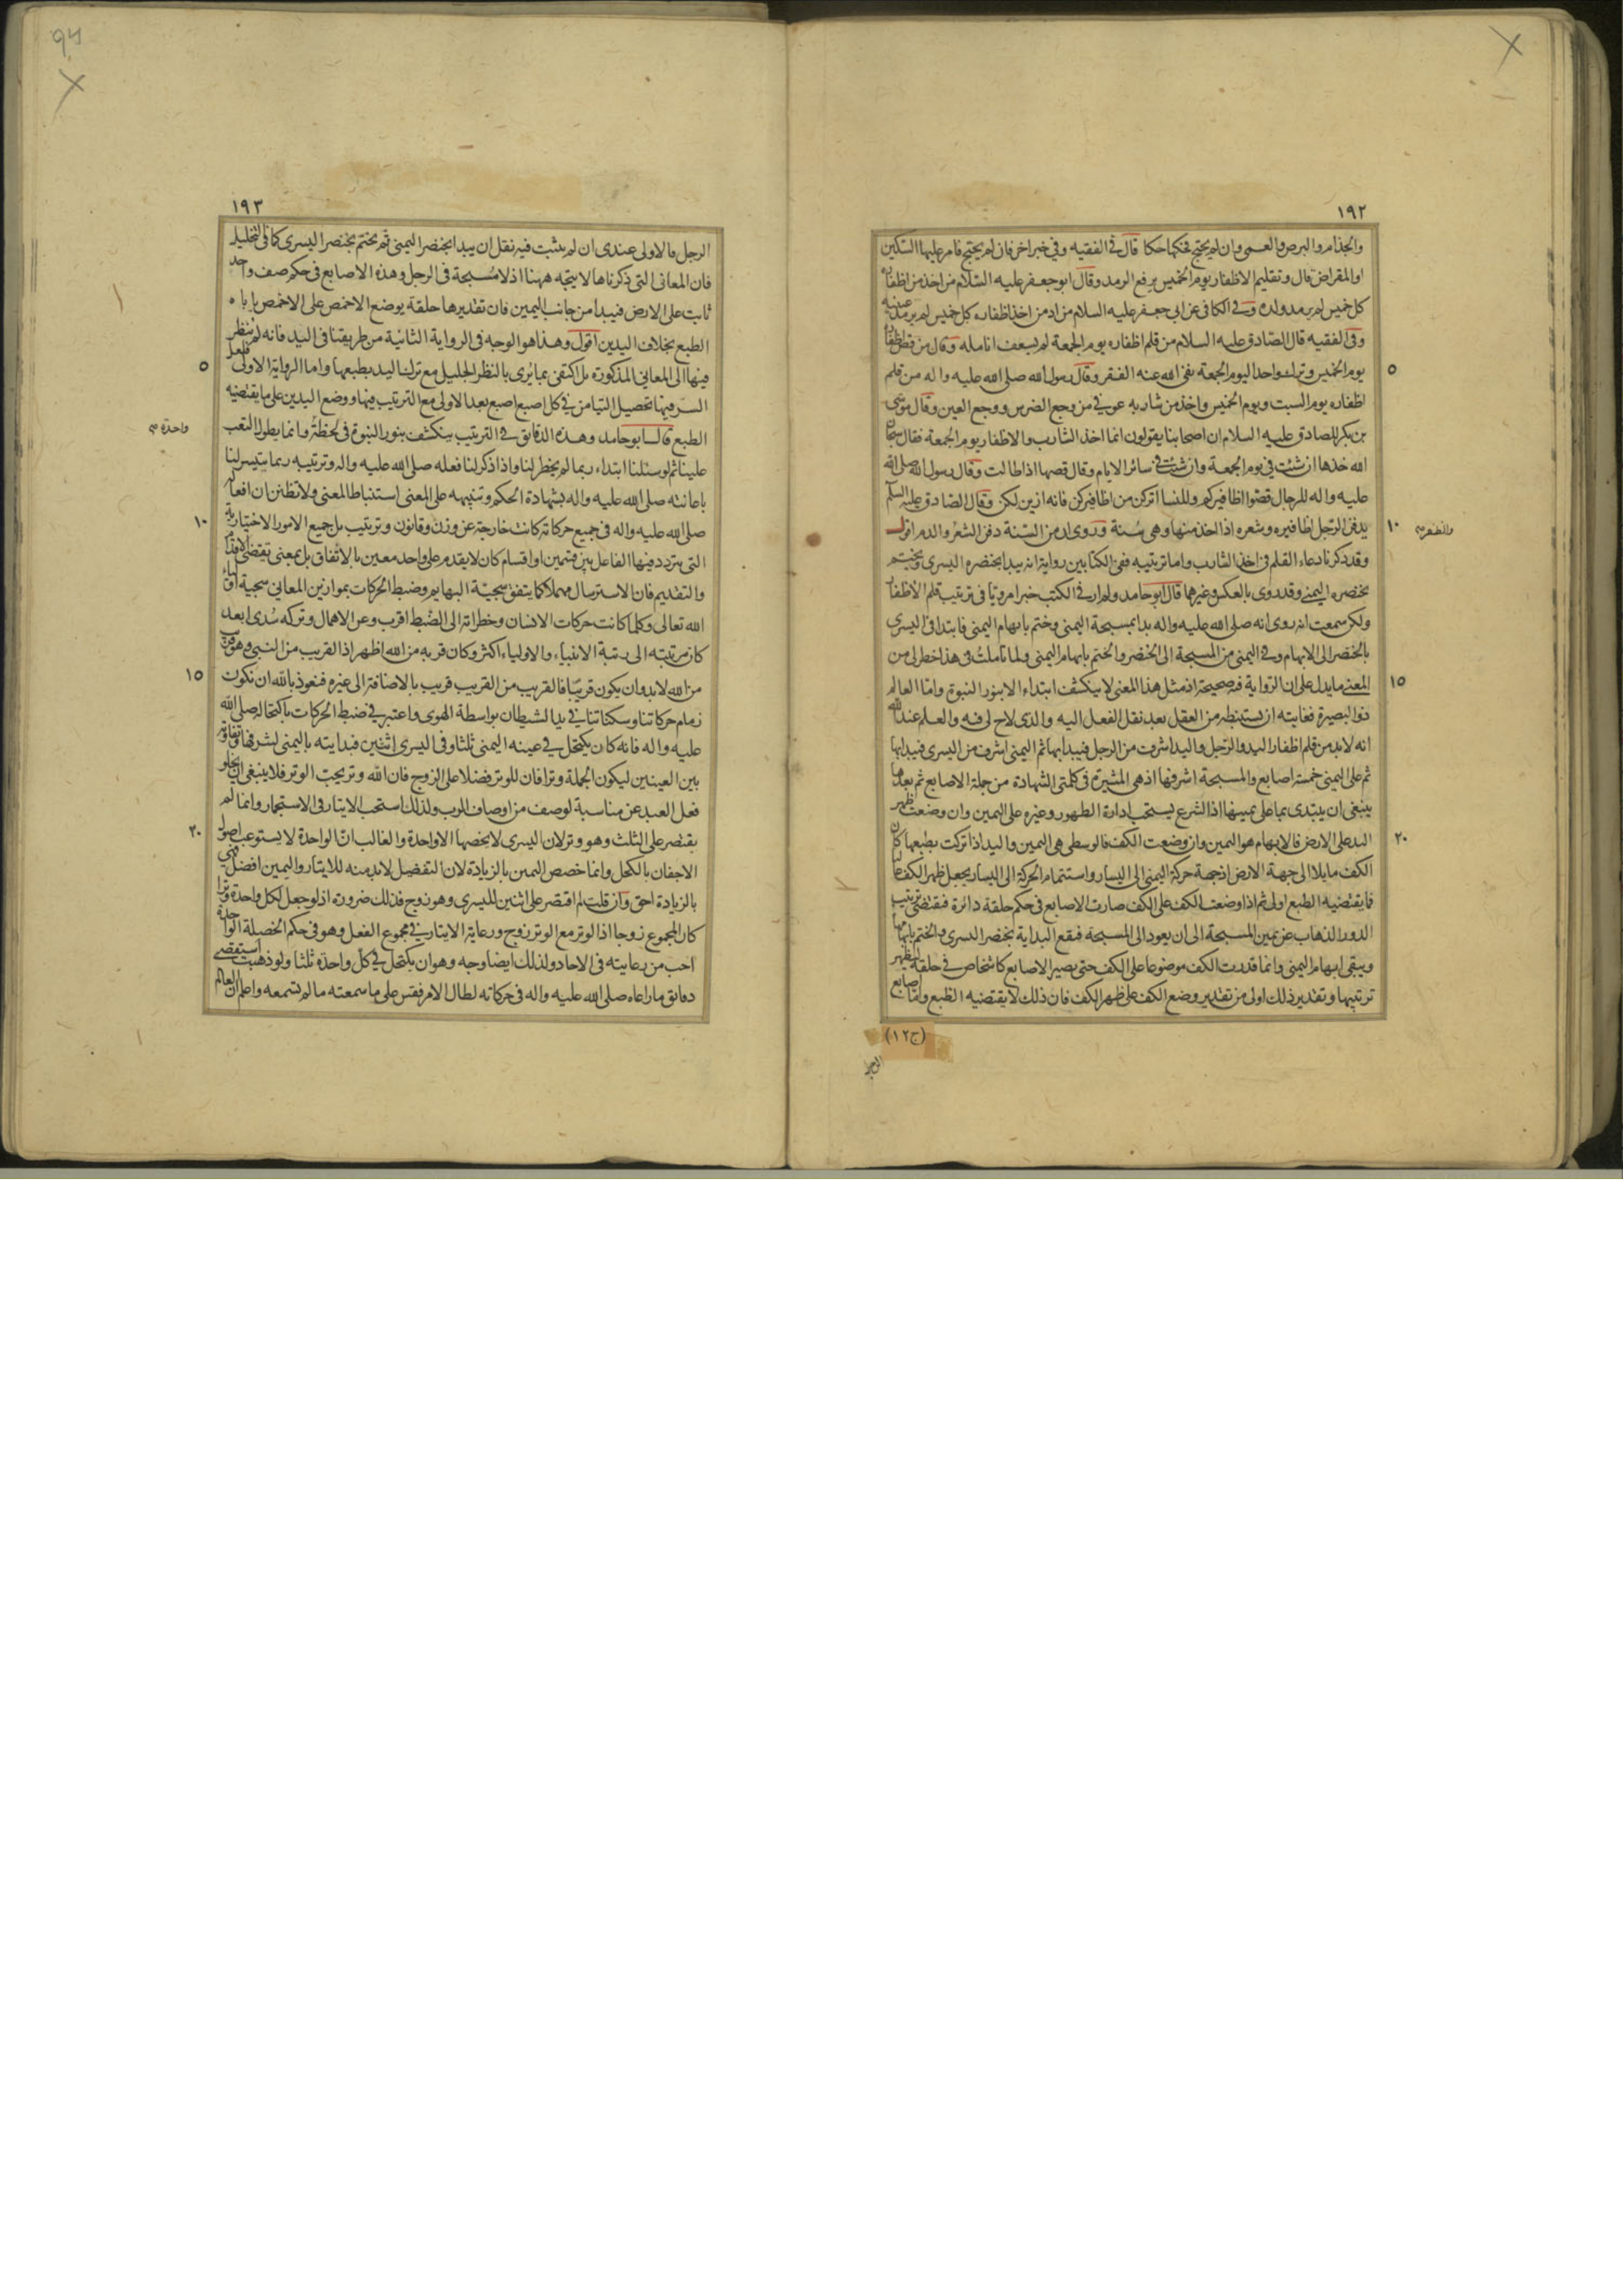 ١٩٢
والجذام والبرص والعمى وان لم يحتج فحكها حكا قال في الفقيه وفي خبر اخر فان لم يحتج فامر عليها السكين
او المقراض قال وتقليم الاظفار يوم الخميس يرفع الرمد وقال ابو جعفر عليه السلام من اخذ من اظفاره
كل خميس لم يرمد ولده وفي الكافي عن ابي جعفر عليه السلام من ادمن اخذ اظفاره كل خميس لم يرمد عينه
وفي الفقيه قال الصادق عليه السلام من قلم اظفاره يوم الجمعة لم يسعف انامله وقال من قص اظفاره
٥
يوم الخميس وترك واحدا ليوم الجمعة نفى الله عنه الفقر وقال رسول الله صلى الله عليه واله من قلم
اظفاره يوم السبت ويوم الخميس واخذ من شاربه عوفي من وجع الضرس ووجع العين وقال موسى
بن بكر للصادق عليه السلام ان اصحابنا يقولون انما اخذ الشارب والاظفار يوم الجمعة فقال سبحان
الله خذها ان شئت في يوم الجمعة وان شئت في سائر الايام وقال قصها اذا طالت وقال رسول الله صلى الله
عليه واله للرجال قصوا اظافيركم وللنسا اتركن من اظافيركن فانه ازين لكن وقال الصادق عليه السلم
١٠
يدفن الرجل اظافيره وشعره اذا اخذ منها وهى سنة وروى ان من السنة دفن الشعر والدم اقول
والظفر
وقد ذكرنا دعاء القلم في اخذ الشارب واما ترتيبه ففي الكتابين رواية انه يبدا بخنصره اليسرى ويختم
بخنصره اليمنى وقد روى بالعكس وغيرهما قال ابو حامد ولم ار في الكتب خبرا مرويا في ترتيب قلم الاظفار
ولكن سمعت انه روى انه صلى الله عليه واله بدا بمسبحة اليمنى وختم بابهام اليمنى فابتدا في اليسرى
بالخنصر الى الابهام وفي اليمنى من المسبحة الى الخنصر والختم بابهام اليمنى ولما تاملت في هذا خطر لى من
١٥
المعنى ما يدل على ان الرواية فيه صحيحة اذ مثل هذا المعنى لا ينكشف ابتداء الا بنور النبوة واما العالم
ذو البصيرة فغايته ان يستنبطه من العقل بعد نقل الفعل اليه والذى لاح لى فيه والعلم عند الله
انه لابد من قلم اظفار اليد والرجل واليد اشرف من الرجل فيبدا بها ثم اليمنى اشرف من اليسرى فيبدا بها
ثم على اليمنى خمسة اصابع والمسبحة اشرفها اذ هى المشيرة في كلمتى الشهادة من جملة الاصابع ثم بعدها
ينبغى ان يبتدى بما على يمينها اذ الشرع يستحب ادارة الطهور وغيره على اليمين وان وضعت ظهر
٢٠
اليد على الارض فالابهام هو اليمين وان وضعت الكف فالوسطى هى اليمين واليد اذا تركت بطبعها كان
الكف مايلا الى جهة الارض اذ جهة حركة اليمنى الى اليسار واستتمام الحركة الى اليسار يجعل ظهر الكف عاليا
فما يقتضيه الطبع اولى ثم اذا وضعت الكف على الكف صارت الاصابع في حكم حلقة دائرة فيقتضى ترتيب
الدور الذهاب عن يمين المسبحة الى ان يعود الى المسبحة فيقع البداية بخنصر اليسرى والختم بابهامها
ويبقى ابهام اليمنى وانما قدرت الكف موضوعا على الكف حتى يصير الاصابع كاشخاص في حلقة ليظهر
ترتيبها وتقدير ذلك اولى من تقدير وضع الكف على ظهر الكف فان ذلك لا يقتضيه الطبع واما اصابع
(ج١٢)
الرجل
١٩٣
الرجل فالاولى عندى ان لم يثبت فيه نقل ان يبدا بخنصر اليمنى ثم يختم بخنصر اليسرى كما في التخليل
فان المعانى التى ذكرناها لا يتجه ههنا اذ لا مسبحة في الرجل وهذه الاصابع في حكم صف واحد
ثابت على الارض فيبدأ من جانب اليمين فان تقديرها حلقة بوضع الاخمص على الاخمص ياباه
الطبع بخلاف اليدين اقول وهذا هو الوجه في الرواية الثانية من طريقنا في اليد فانه لم ينظر
٥
فيها الى المعانى المذكورة بل اكتفى بما يرى بالنظر الجليل مع ترك اليد بطبعها واما الرواية الاولى فلعل
السر فيها تحصيل التيامن في كل اصبع اصبع بعد الاولى مع الترتيب فيها ووضع اليدين على ما يقتضيه
الطبع قال ابو حامد وهذه الدقايق في الترتيب ينكشف بنور النبوة في لحظة وانما يطول التعب
واحدة
علينا ثم لو سئلنا ابتداء ربما لم يخطر لنا واذا ذكر لنا فعله صلى الله عليه واله وترتيبه ربما يتيسر لنا
باعانته صلى الله عليه واله بشهادة الحكم وتنبيهه على المعنى استنباط المعنى ولا تظنن ان افعاله
١٠
صلى الله عليه واله في جميع حركاته كانت خارجة عن وزن وقانون وترتيب بل جميع الامور الاختيارية
التى يتردد فيها الفاعل بين قسمين او اقسام كان لا يقدم على واحد معين بالاتفاق بل بمعنى تقتضى الاقدام
والتقديم فان الاسترسال مهملا كما يتفق سجية البهايم وضبط الحركات بموازين المعانى سجية اولياء
الله تعالى وكلما كانت حركات الانسان وخطراته الى الضبط اقرب وعن الاهمال وتركه سدى ابعد
كان مرتبته الى رتبة الانبياء والاولياء اكثر وكان قربه من الله اظهر اذ القريب من النبى وهو قريب
١٥
من الله لابد وان يكون قريبا فالقريب من القريب قريب بالاضافة الى غيره فنعوذ بالله ان تكون
زمام حركاتنا وسكناتنا في يد الشيطان بواسطة الهوى واعتبر في ضبط الحركات باكتحاله صلى الله
عليه واله فانه كان يكتحل في عينه اليمنى ثلثا وفى اليسرى اثنين فبدايته باليمنى لشرفها وتفاوته
بين العينين ليكون الجملة وترا فان للوتر فضلا على الزوج فان الله وتر يحب الوتر فلا ينبغى ان يخلو
فعل العبد عن مناسبة لوصف من اوصاف الرب ولذلك استحب الايتار في الاستجمار وانما لم
٢٠
يقتصر على الثلث وهو وتر لان اليسرى لا يخصها الا واحدة والغالب ان الواحدة لا يستوعب اصول
الاجفان بالكحل وانما خصص اليمين بالزيادة لان التفضيل لابد منه للايتار واليمين افضل فهى
بالزيادة احق وان قلت لم اقتصر على اثنين لليسرى وهو زوج فذلك ضرورة اذ لو جعل لكل واحدة وترا
كان المجموع زوجا اذ الوتر مع الوتر زوج ورعاية الايتار في مجموع الفعل وهو في حكم الخصلة الواحدة
احب من رعايته في الاحاد ولذلك ايضا وجه وهو ان يكتحل في كل واحدة ثلثا ولو ذهبت استقصى
دقائق ما راعاه صلى الله عليه واله في حركاته لطال الامر فقس على ما سمعته ما لم تسمعه واعلم ان العالم